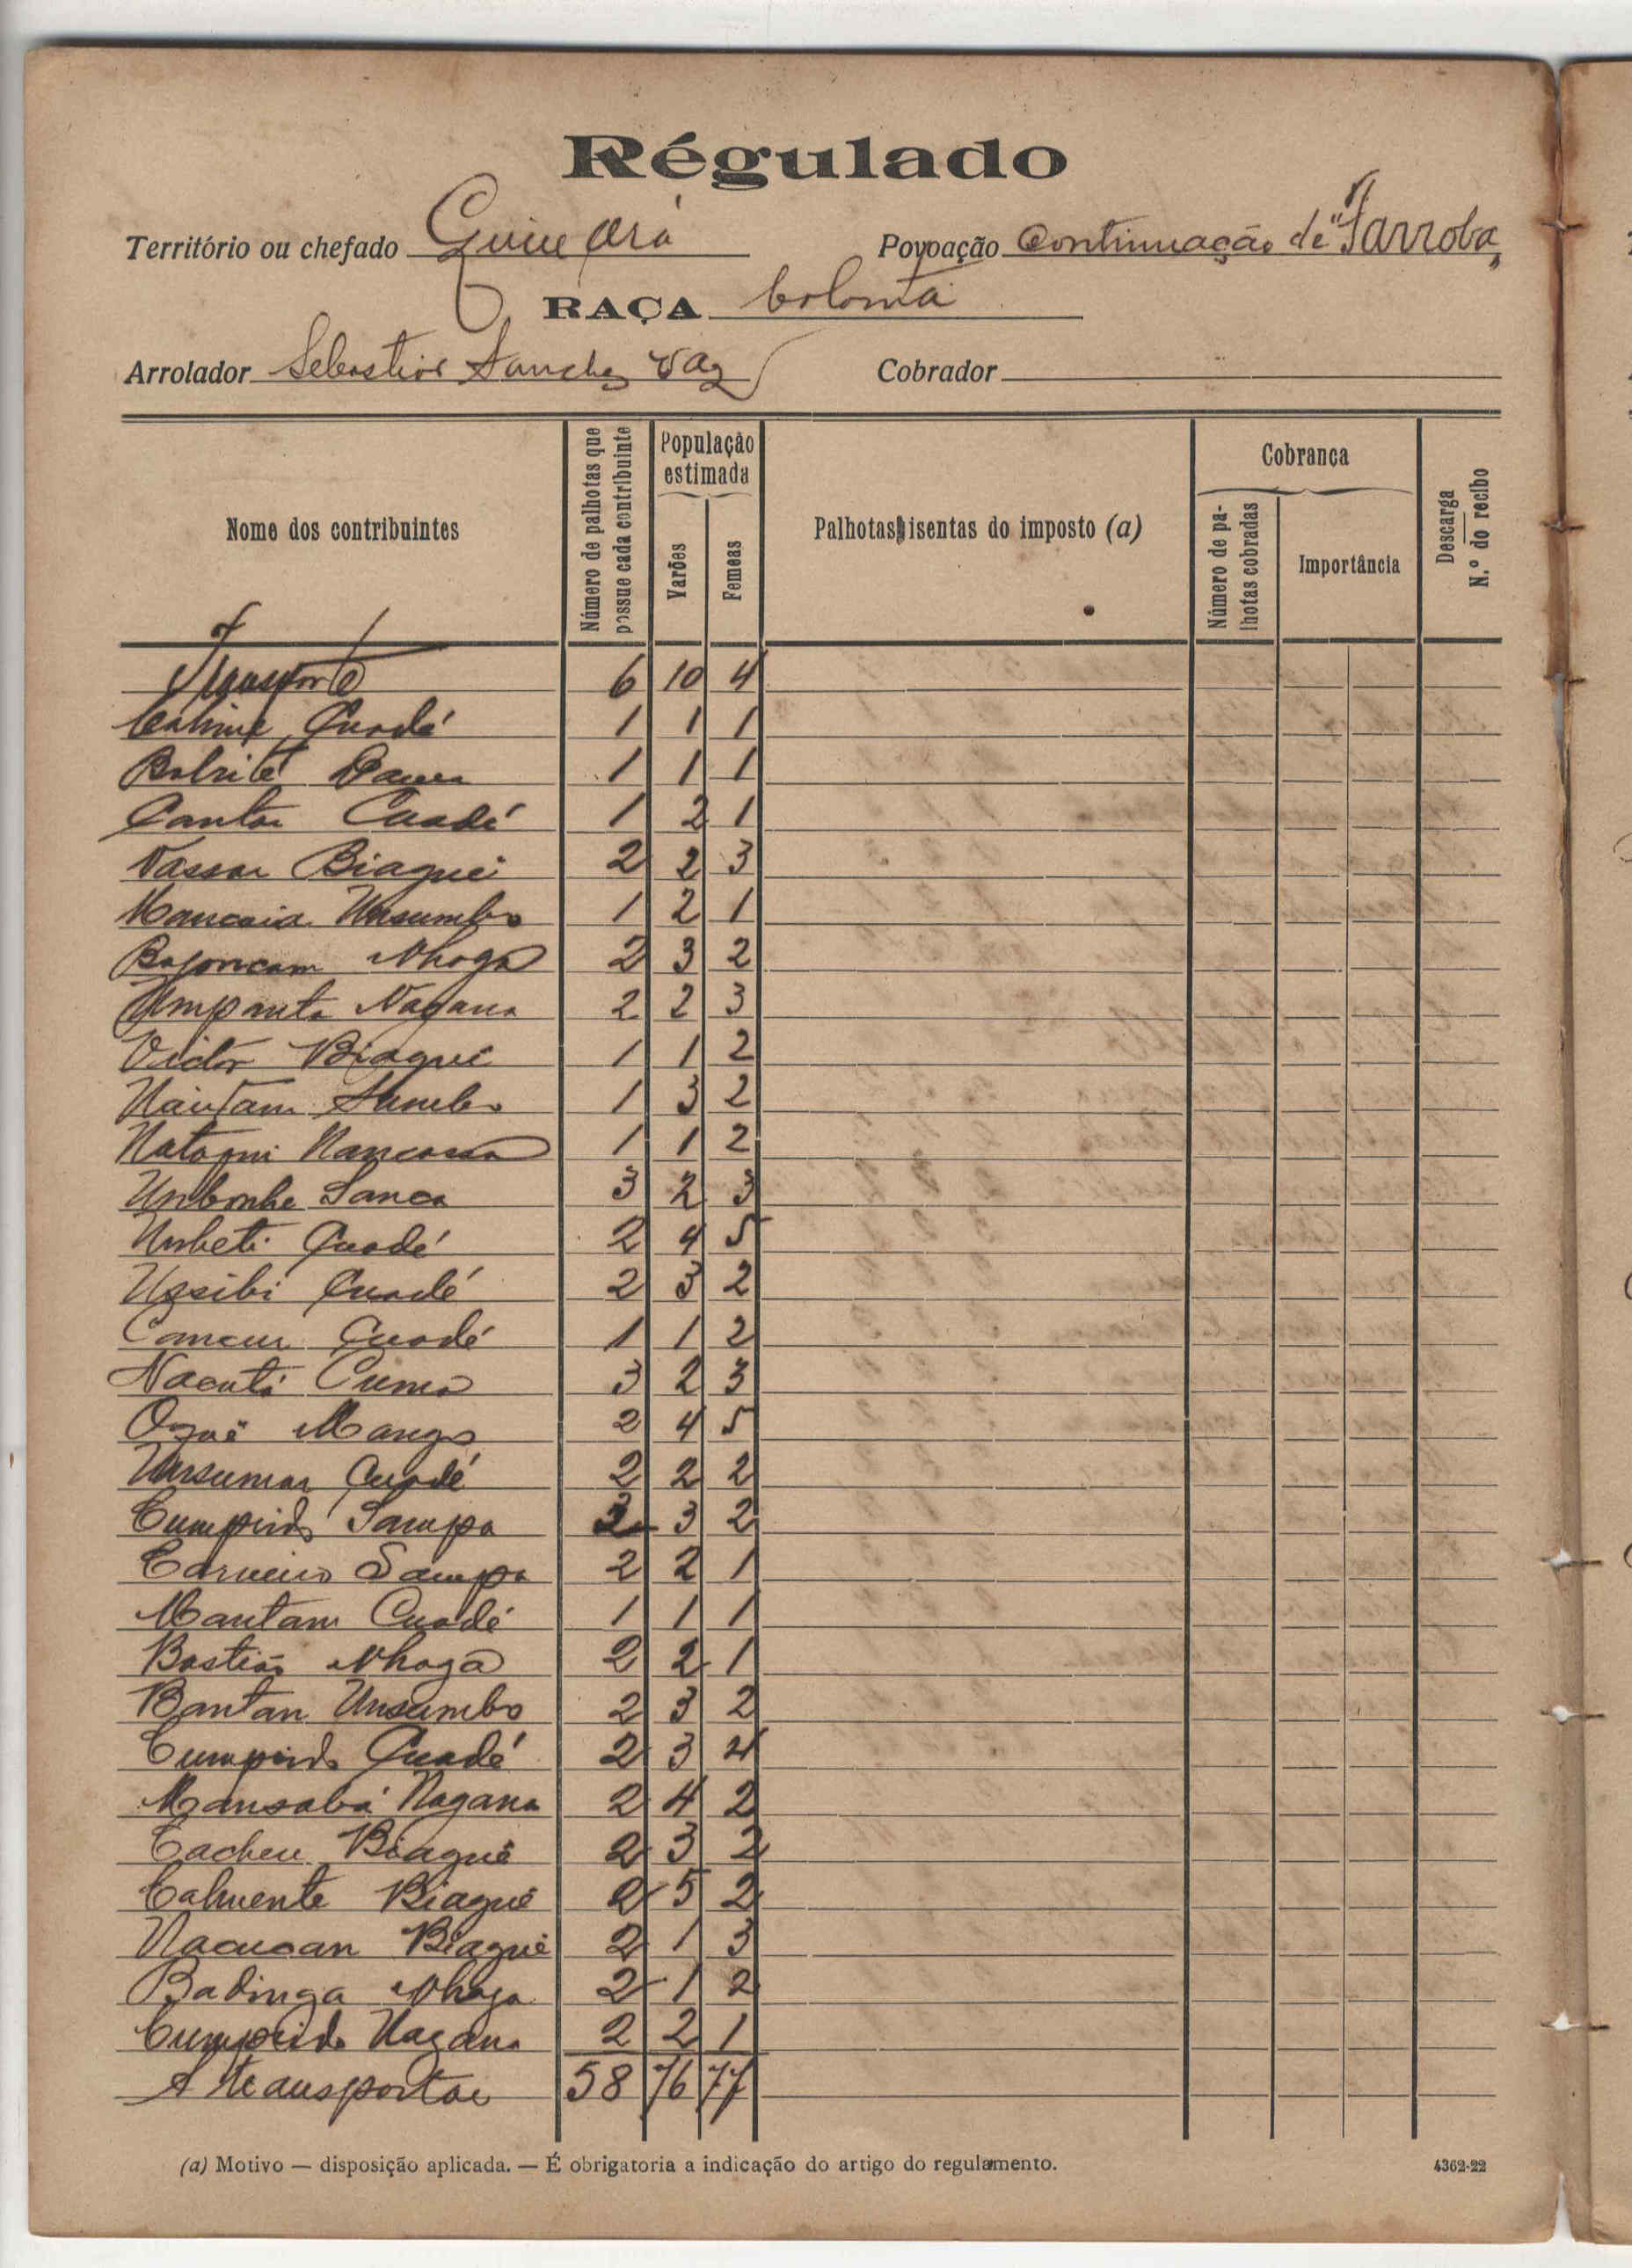 Régulado
Território ou chefado Povoação Continuação de "Jarroba"
RAÇA
Arrolador Sebastião Sanches Vaz Cobrador
Nome dos contribuintes
Número de palhotas que possue cada contribuinte
População estimada
Varões
Femeas
Palhotas isentas do imposto (a)
Cobrança
Número de palhotas cobradas
Importância
Descarga
N.º do recibo
Transporte 6 10 4
Cuadé 1 1 1
1 1 1
Cuadé 1 2 1
Nassar Biague 2 2 3
Mancaia Unsumbo 1 2 1
Nhaga 2 3 2
Umpanta Nagana 2 2 3
Victor Biague 1 1 2
1 3 2
1 1 2
Unbonhe Sanca 3 2 3
Unbeti Cuadé 2 4 5
Ussibi Cuadé 2 3 2
Cancur Cuadé 1 1 2
3 2 3
2 4 5
Unsumar Cuadé 2 2 2
Cumprido Sampa 3 2
Carneiro Sampa 2 2 1
Mantam Cuadé 1 1 1
Bastião Nhaga 2 2 1
Bantan Unsumbo 2 3 2
Cumprido Cuadé 2 3 4
Mansabá Nagana 2 4 2
Cacheu Biague 2 3 2
Biague 2 5 2
Nacucan Biague 2 1 3
Badinga Nhaga 2 1 2
Cumprido Nagana 2 2 1
A transportar 58 76 77
(a) Motivo — disposição aplicada. — É obrigatoria a indicação do artigo do regulamento. 4362-22